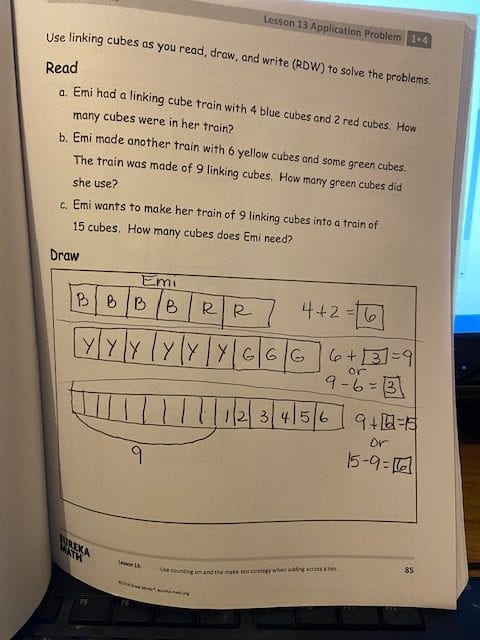 Lesson 13 Application Problem 1•4
Use linking cubes as you read, draw, and write (RDW) to solve the problems.
Read
a. Emi had a linking cube train with 4 blue cubes and 2 red cubes. How
many cubes were in her train?
b. Emi made another train with 6 yellow cubes and some green cubes.
The train was made of 9 linking cubes. How many green cubes did
she use?
c. Emi wants to make her train of 9 linking cubes into a train of
15 cubes. How many cubes does Emi need?
Draw
Emi
B B B B R R 4+2=6
Y Y Y Y Y Y G G G 6+3=9
or
9-6=3
1 2 3 4 5 6 9+6=15
9 or
15-9=6
EUREKA
MATH
Lesson 13: Use counting on and the make ten strategy when adding across a ten. 85
F5 F6